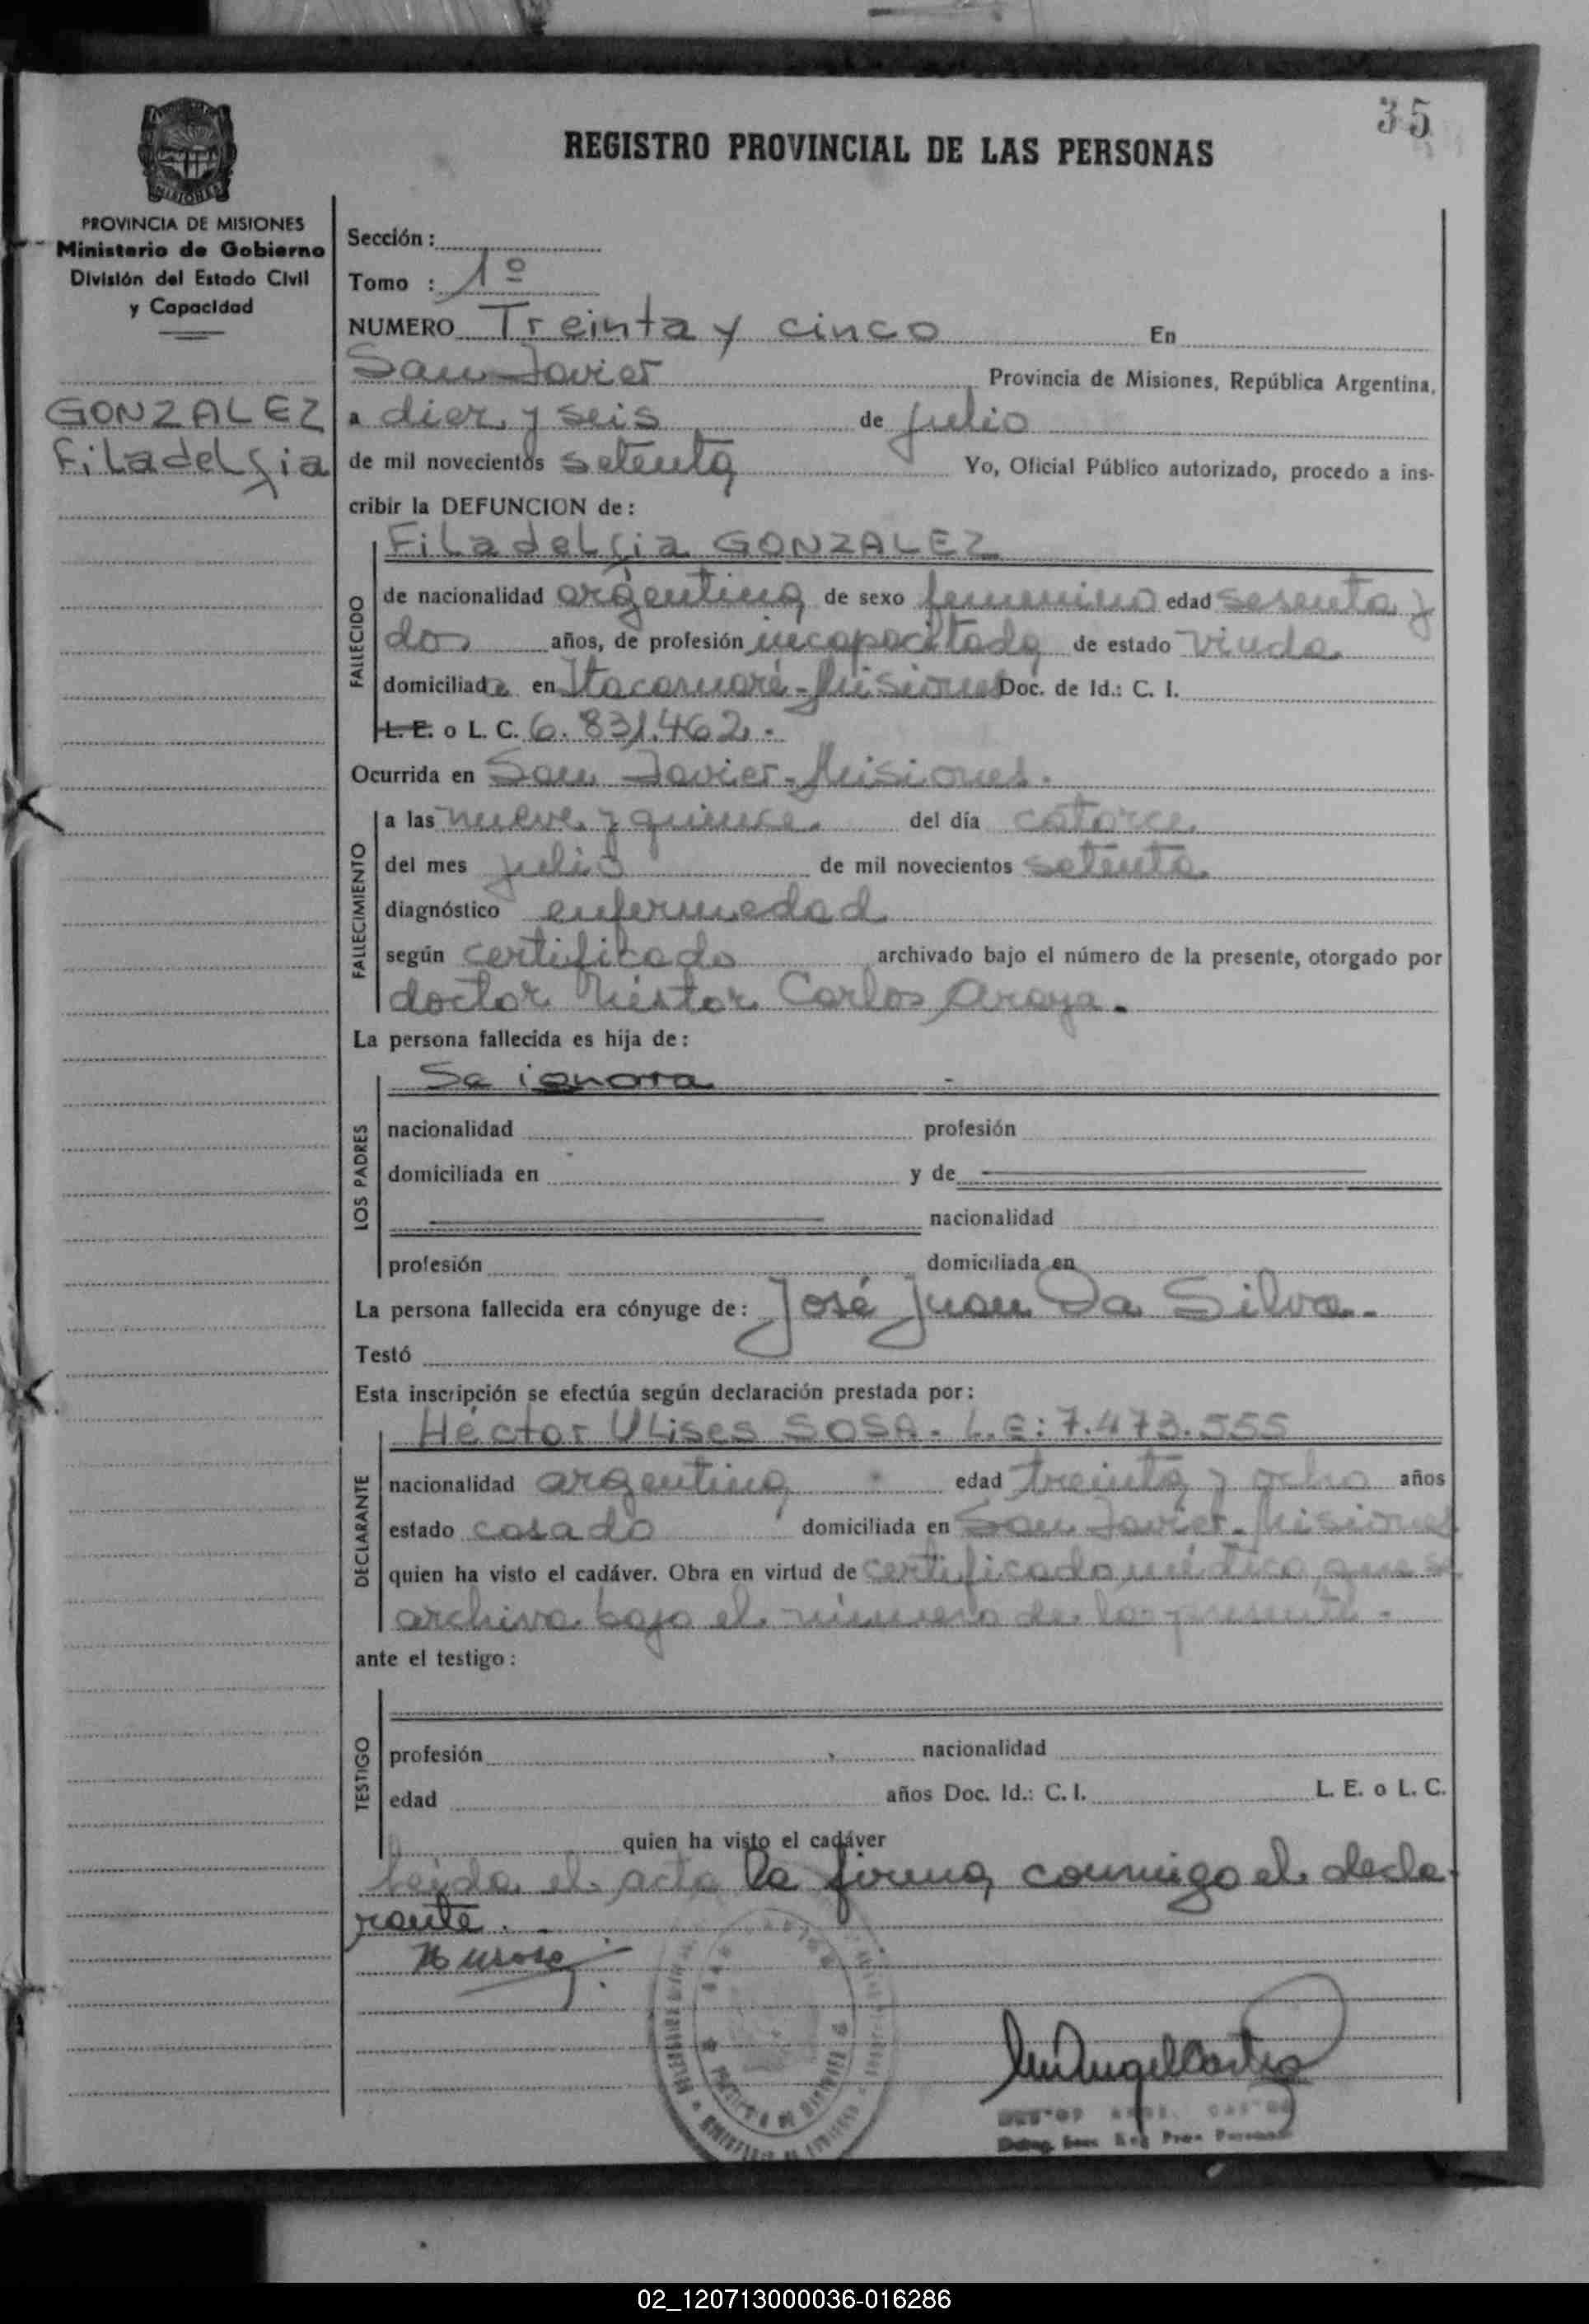 35
REGISTRO PROVINCIAL DE LAS PERSONAS
MISIONES
PROVINCIA DE MISIONES
Ministerio de Gobierno
División del Estado Civil
y Capacidad
GONZALEZ
Filadelfia
Sección :
Tomo : 1º
NUMERO Treinta y cinco En
San Javier Provincia de Misiones, República Argentina,
a diez y seis de julio
de mil novecientos setenta Yo, Oficial Público autorizado, procedo a ins-
cribir la DEFUNCION de :
Filadelfia GONZALEZ
FALLECIDO
de nacionalidad argentina de sexo femenino edad sesenta y
dos años, de profesión incapacitada de estado viuda
domiciliada en Itacaruaré - Misiones Doc. de Id.: C. I.
L. E. o L. C. 6.831.462.-
Ocurrida en San Javier - Misiones.
FALLECIMIENTO
a las nueve y quince del día catorce
del mes julio de mil novecientos setenta
diagnóstico enfermedad
según certificado archivado bajo el número de la presente, otorgado por
doctor Néstor Carlos Araya.-
La persona fallecida es hija de :
LOS PADRES
Se ignora -
nacionalidad profesión
domiciliada en y de
nacionalidad
profesión domiciliada en
La persona fallecida era cónyuge de : José Juan Da Silva.-
Testó
Esta inscripción se efectúa según declaración prestada por :
DECLARANTE
Héctor Ulises SOSA - L.E: 7.473.555
nacionalidad argentina edad treinta y ocho años
estado casado domiciliada en San Javier - Misiones
quien ha visto el cadáver. Obra en virtud de certificado médico que se
archiva bajo el número de la presente.-
ante el testigo :
TESTIGO
profesión nacionalidad
edad años Doc. Id.: C. I. L. E. o L. C.
quien ha visto el cadáver
Leída el acta la firma conmigo el decla-
rante.-
02_120713000036-016286